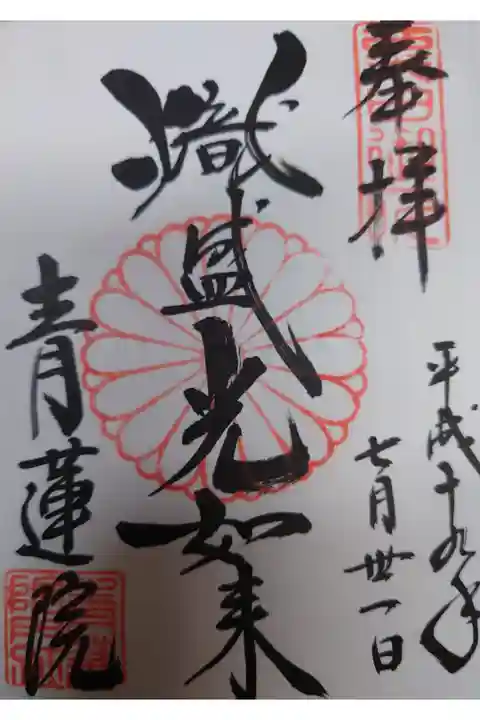 奉拝
平成十九年
七月卅一日
熾盛光如来
青蓮院